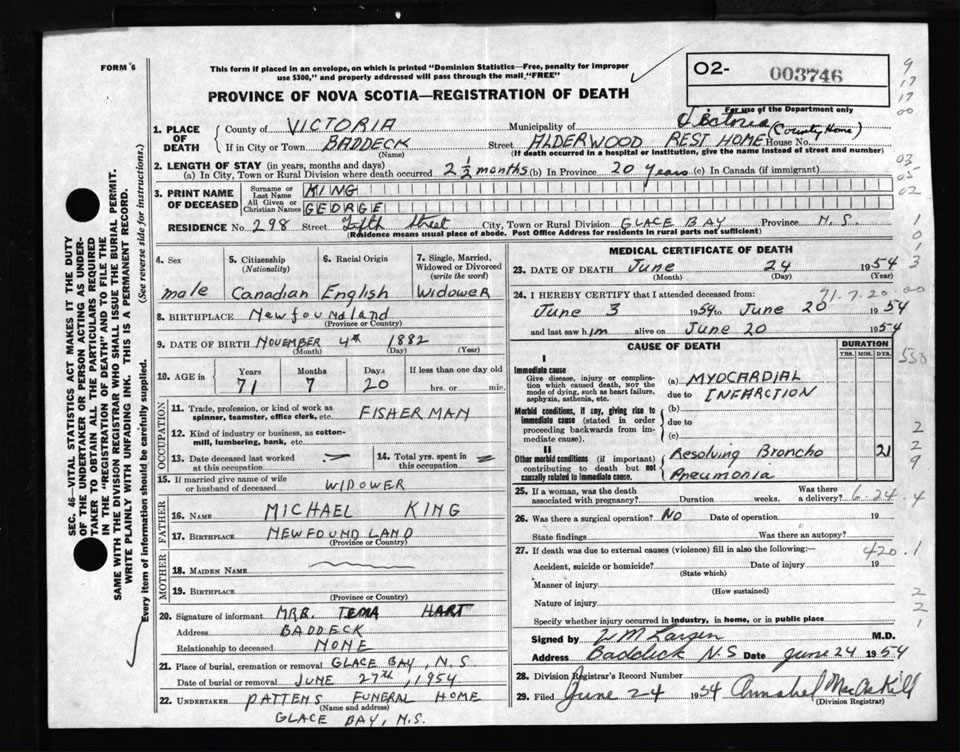 FORM 6
This form if placed in an envelope, on which is printed "Dominion Statistics—Free, penalty for improper
use $300," and properly addressed will pass through the mail "FREE"
O2- 003746
PROVINCE OF NOVA SCOTIA—REGISTRATION OF DEATH
For use of the Department only
1. PLACE OF DEATH
County of VICTORIA Municipality of Victoria
If in City or Town BADDECK (Name) Street ALDERWOOD REST HOME (County Home) House No.
(If death occurred in a hospital or institution, give the name instead of street and number)
2. LENGTH OF STAY (in years, months and days)
(a) In City, Town or Rural Division where death occurred 2 ½ months (b) In Province 20 years (c) In Canada (if immigrant)
3. PRINT NAME OF DECEASED
Surname or Last Name KING
All Given or Christian Names GEORGE
RESIDENCE No. 298 Street Fifth Street City, Town or Rural Division GLACE BAY Province N.S.
(Residence means usual place of abode. Post Office Address for residents in rural parts not sufficient)
4. Sex male
5. Citizenship (Nationality) Canadian
6. Racial Origin English
7. Single, Married, Widowed or Divorced (write the word) WIDOWER
8. BIRTHPLACE Newfoundland
(Province or Country)
9. DATE OF BIRTH NOVEMBER 4th 1882
(Month) (Day) (Year)
10. AGE in Years 71 Months 7 Days 20 If less than one day old hrs. or min.
OCCUPATION
11. Trade, profession, or kind of work as spinner, teamster, office clerk, etc. FISHERMAN
12. Kind of industry or business, as cotton-mill, lumbering, bank, etc.
13. Date deceased last worked at this occupation
14. Total yrs. spent in this occupation
15. If married give name of wife or husband of deceased WIDOWER
FATHER
16. NAME MICHAEL KING
17. BIRTHPLACE NEWFOUNDLAND
(Province or Country)
MOTHER
18. MAIDEN NAME
19. BIRTHPLACE
(Province or Country)
20. Signature of informant MRS. TEMA HART
Address BADDECK
Relationship to deceased NONE
21. Place of burial, cremation or removal GLACE BAY, N.S
Date of burial or removal JUNE 27th, 1954
22. UNDERTAKER PATTENS FUNERAL HOME
(Name and address)
GLACE BAY, N.S.
MEDICAL CERTIFICATE OF DEATH
23. DATE OF DEATH June 24 1954
(Month) (Day) (Year)
71.7.20.00
24. I HEREBY CERTIFY that I attended deceased from:
June 3 1954 to June 20 1954
and last saw him alive on June 20 1954
CAUSE OF DEATH
DURATION
YRS. MOS. DYS.
I
Immediate cause
Give disease, injury or complication which caused death, NOT the mode of dying, such as heart failure, asphyxia, asthenia, etc.
(a) MYOCARDIAL
due to INFARCTION
Morbid conditions, if any, giving rise to immediate cause (stated in order proceeding backwards from immediate cause).
(b)
due to
(c)
II
Other morbid conditions (if important) contributing to death but not causally related to immediate cause.
Resolving Broncho 21
Pneumonia
25. If a woman, was the death associated with pregnancy? Duration weeks. Was there a delivery? 6.24.4
26. Was there a surgical operation? No Date of operation 19
State findings Was there an autopsy?
27. If death was due to external causes (violence) fill in also the following:— 420.1
Accident, suicide or homicide? (State which) Date of injury 19
Manner of injury (How sustained)
Nature of injury
Specify whether injury occurred in industry, in home, or in public place
Signed by M.D.
Address Baddeck N.S Date June 24 1954
28. Division Registrar's Record Number
29. Filed June 24 1954 Annabel MacAskill
(Division Registrar)
SEC. 46—VITAL STATISTICS ACT MAKES IT THE DUTY
OF THE UNDERTAKER OR PERSON ACTING AS UNDER-
TAKER TO OBTAIN ALL THE PARTICULARS REQUIRED
IN THE "REGISTRATION OF DEATH" AND TO FILE THE
SAME WITH THE DIVISION REGISTRAR WHO SHALL ISSUE THE BURIAL PERMIT.
WRITE PLAINLY WITH UNFADING INK. THIS IS A PERMANENT RECORD.
Every item of information should be carefully supplied. (See reverse side for instructions.)
9
17
17
00
03
05
02
1
0
1
3
550
2
2
9
2
2
1